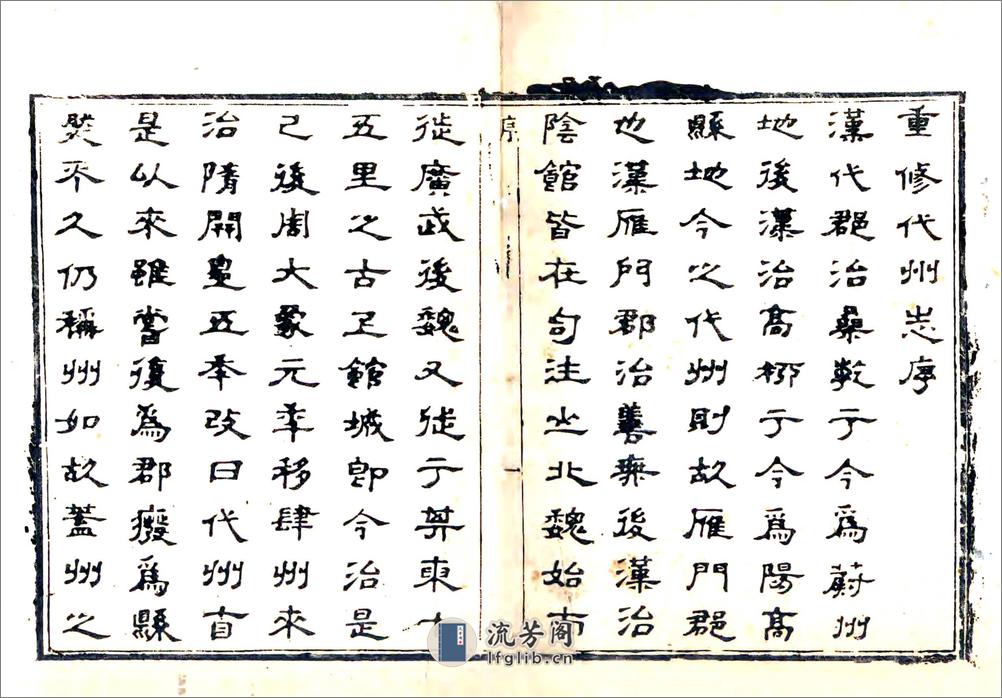 重修代州志序
漢代郡治桑乾于今為蔚州
地後漢治高柳于今為陽高
縣地今之代州則故雁門郡
也漢雁門郡治善無後漢治
陰館皆在句注之北魏始南
序
一
徙廣武後魏又徙于其東十
五里之古上館城即今治是
已後周大象元年移肆州來
治隋開皇五年改曰代州自
是以來雖嘗復為郡廢為縣
不久仍稱州如故蓋州之
流芳阁
lfglib.cn